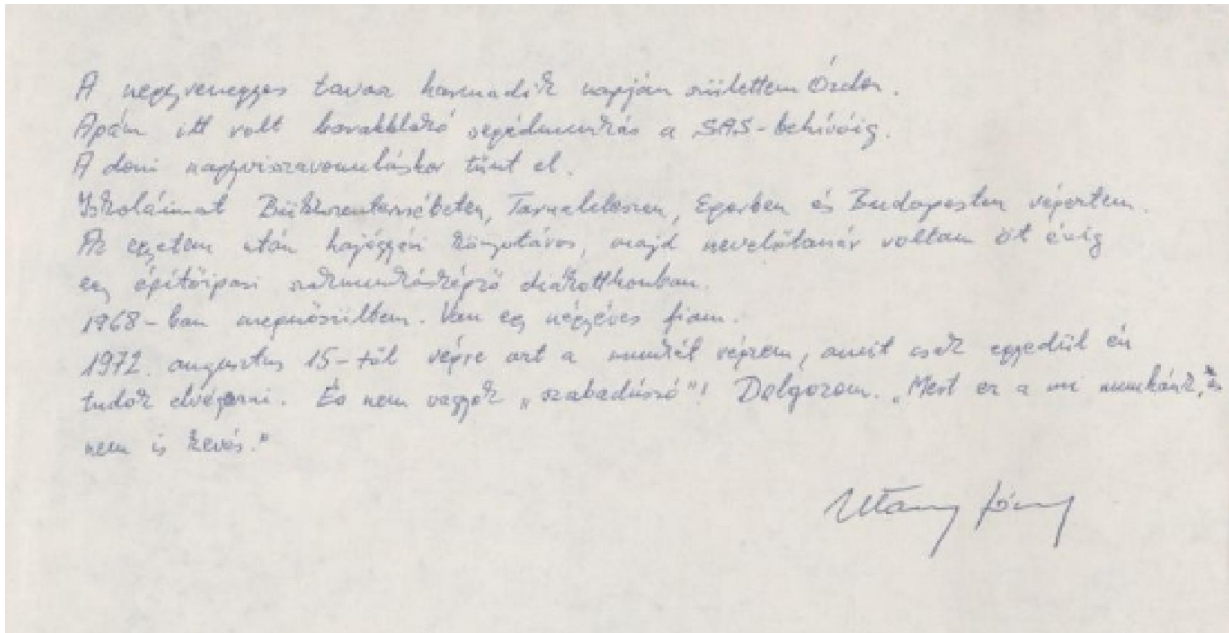 A negyvenegyes tavasz harmadik napján születtem Ózdon.
Apám itt volt baraklakó segédmunkás a SAS-behívóig.
A doni nagyvisszavonuláskor tűnt el.
Iskoláimat Bükkszenterzsébeten, Tarnaleleszen, Egerben és Budapesten végeztem.
Az egyetem után hajógyári könyvtáros, majd nevelőtanár voltam öt évig
egy építőipari szakmunkásképző diákotthonban.
1968-ban megnősültem. Van egy négyéves fiam.
1972. augusztus 15-től végre azt a munkát végzem, amit csak egyedül én
tudok elvégezni. És nem vagyok „szabadúszó"! Dolgozom. „Mert ez a mi munkánk, és
nem is kevés."
Utassy József